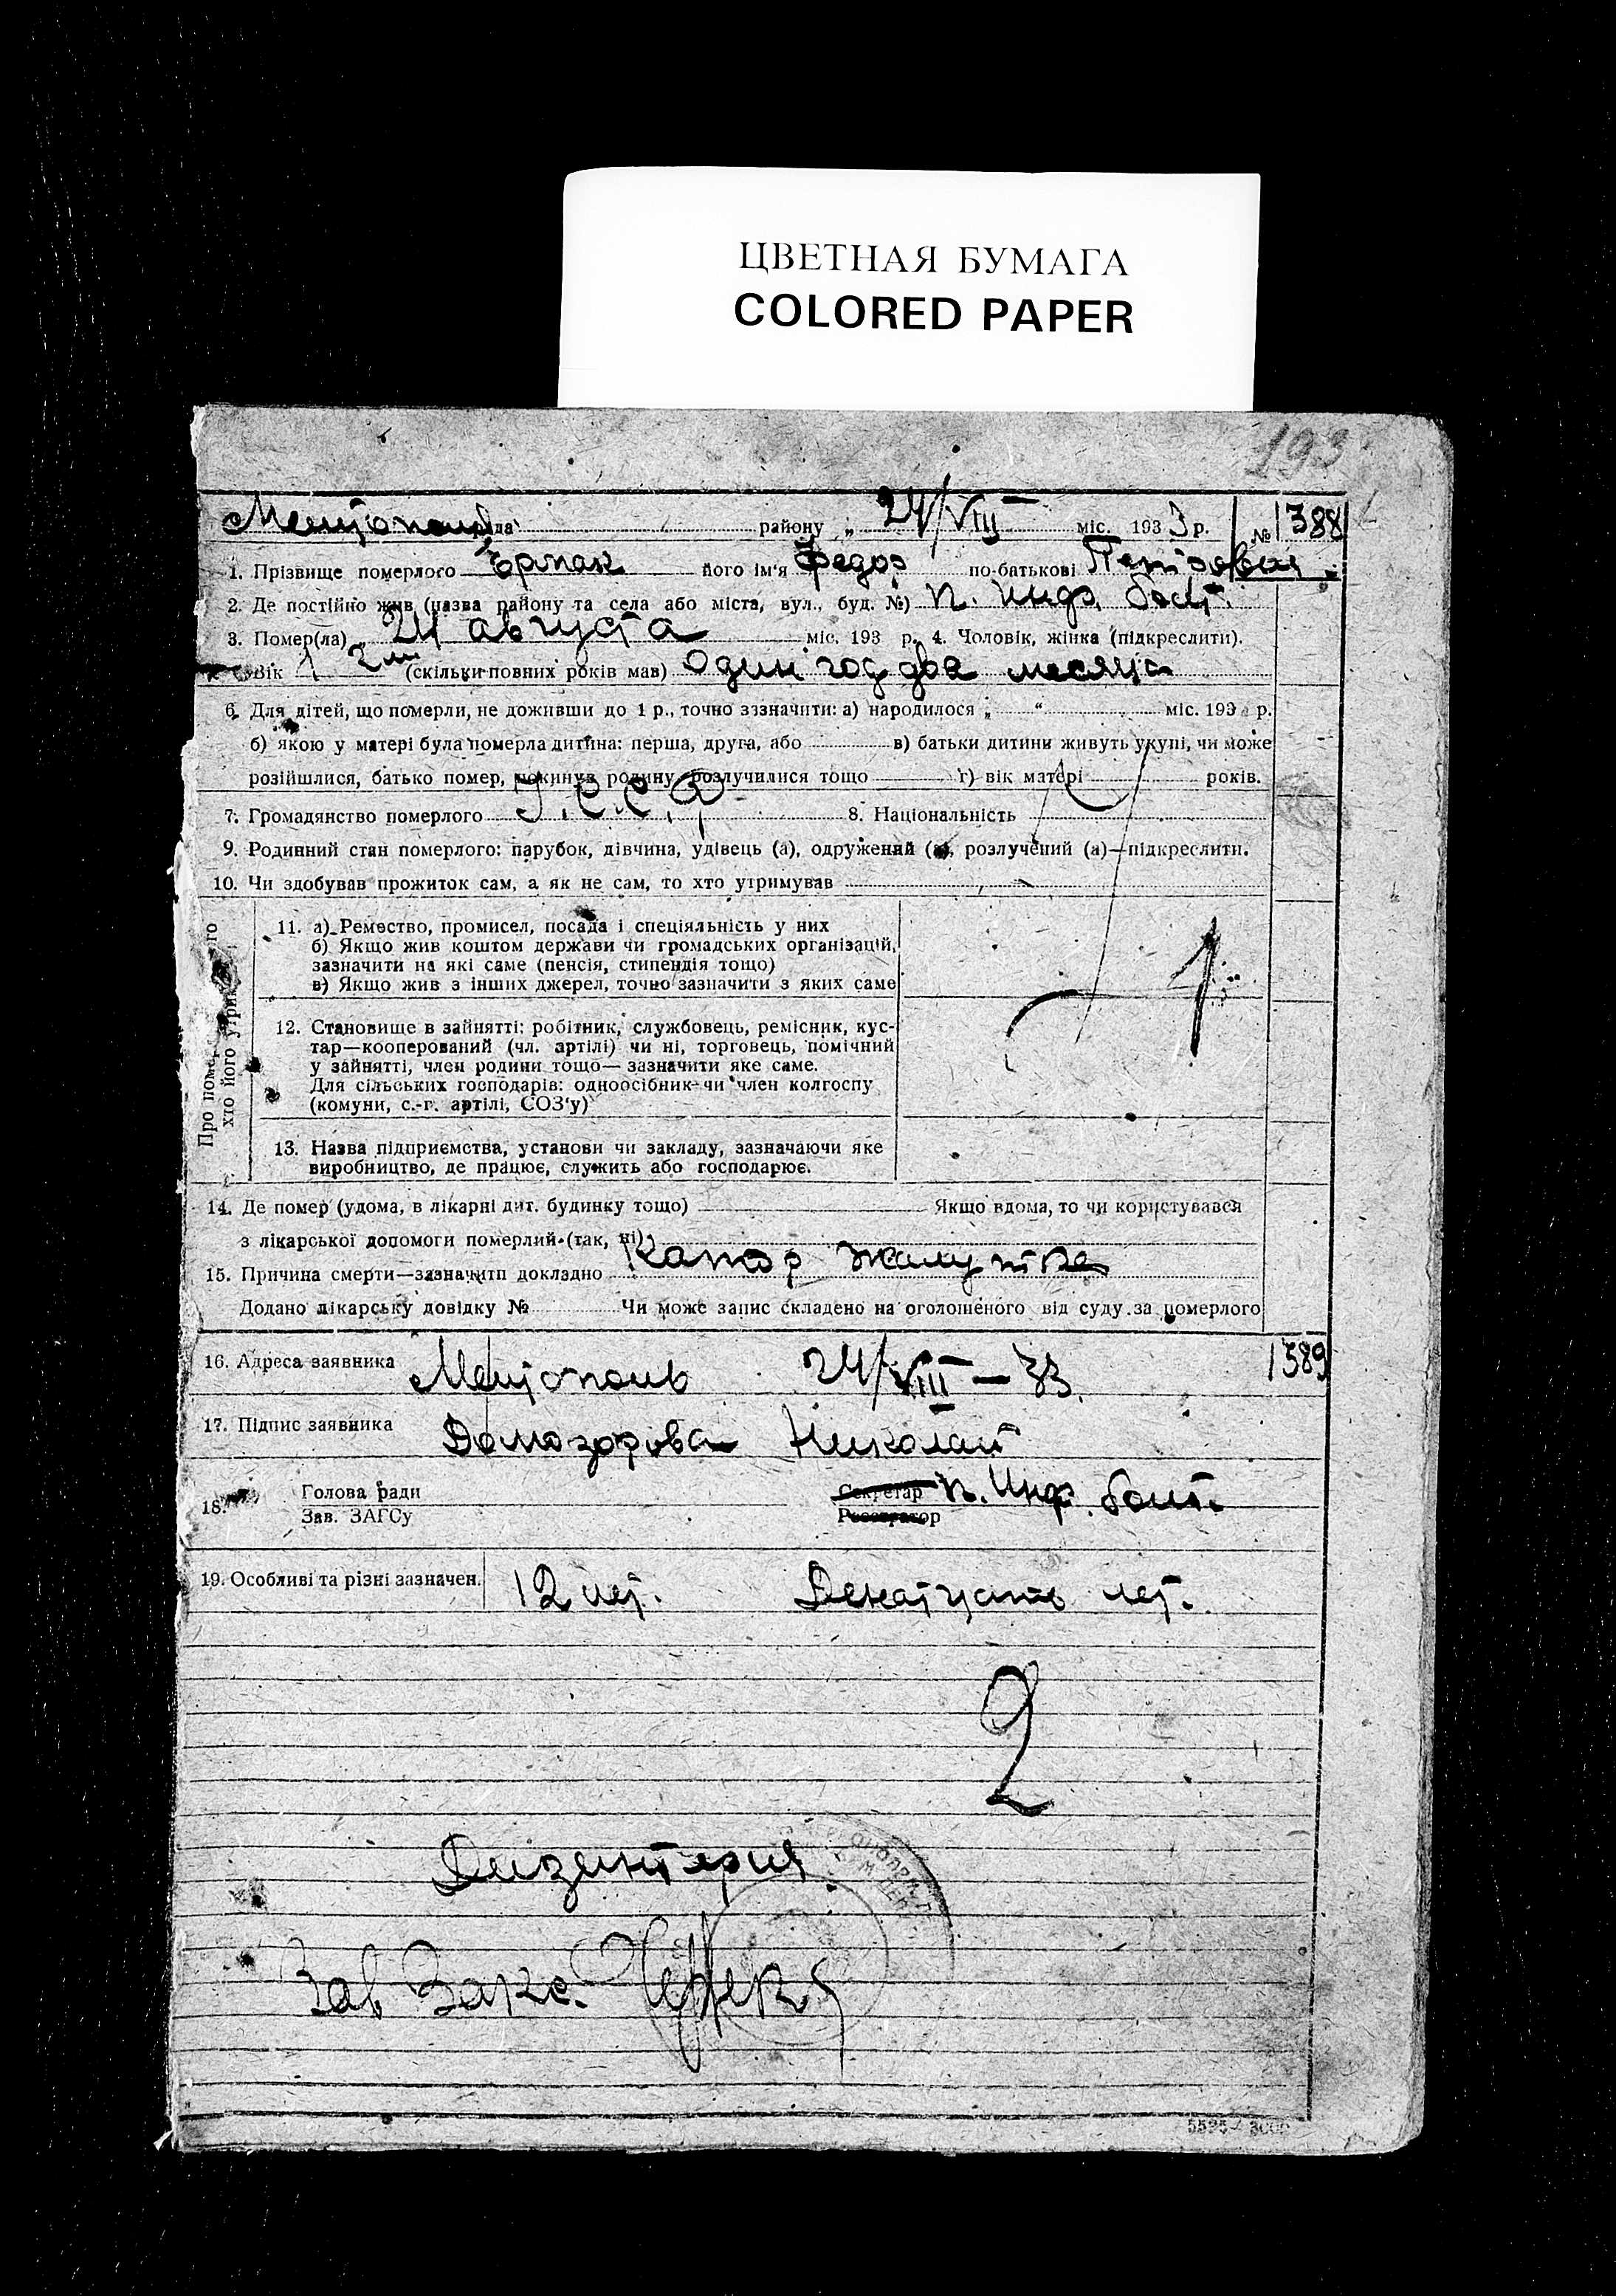 ЦВЕТНАЯ БУМАГА
COLORED PAPER
193
району „ 24/VIII міс. 1933 р. № 1388
1. Прізвище померлого Ермак його ім'я Федор по-батькові
2. Де постійно жив (назва району та села або міста, вул., буд. №) п. Инф. бол.
3. Помер(ла) „ 24 августа міс. 193 р. 4. Чоловік, жінка (підкреслити).
Вік 1 2 м (скільки повних років мав) Один год два месяца
6. Для дітей, що померли, не доживши до 1 р., точно зазначити: а) народилося „ “ міс. 193 р.
б) якою у матері була померла дитина: перша, друга, або в) батьки дитини живуть укупі, чи може
розійшлися, батько помер, покинув родину, розлучилися тощо г) вік матері років.
7. Громадянство померлого У.С.С.Р 8. Національність
9. Родинний стан померлого: парубок, дівчина, удівець (а), одружений (а), розлучений (а)—підкреслити.
10. Чи здобував прожиток сам, а як не сам, то хто утримував
Про помер го
хто його утрим
11. а) Ремество, промисел, посада і спеціяльність у них
б) Якщо жив коштом держави чи громадських організацій,
зазначити на які саме (пенсія, стипендія тощо)
в) Якщо жив з інших джерел, точно зазначити з яких саме
1
12. Становище в зайнятті: робітник, службовець, ремісник, кус-
тар—кооперований (чл. артілі) чи ні, торговець, помічний
у зайнятті, член родини тощо— зазначити яке саме.
Для сільських господарів: одноосібник чи член колгоспу
(комуни, с.-г. артілі, СОЗ'у)
13. Назва підприємства, установи чи закладу, зазначаючи яке
виробництво, де працює, служить або господарює.
14. Де помер (удома, в лікарні дит. будинку тощо) Якщо вдома, то чи користувався
з лікарської допомоги померлий (так, ні)
15. Причина смерти—зазначити докладно Катар желутка
Додано лікарську довідку № Чи може запис складено на оголошеного від суду за померлого
16. Адреса заявника Меліополь 24/VIII—33. 1389
17. Підпис заявника Домозорова Николай
18. Голова ради Секретар п. Инф. бол.
Зав. ЗАГСу Реєстратор
19. Особливі та різні зазначен. 12 лет. Двенатцать лет.
2
Дизентерия
Зав Загс.
5525—3000